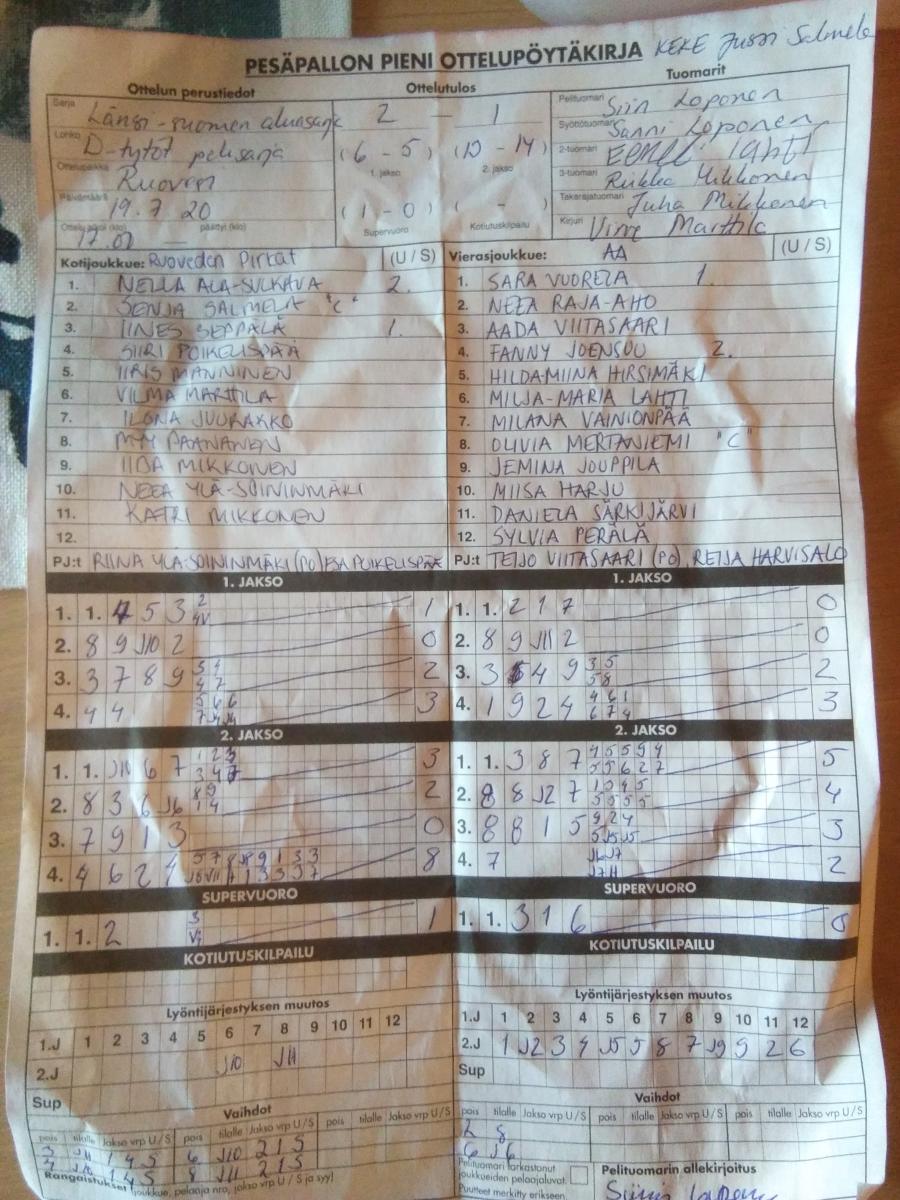 PESÄPALLON PIENI OTTELUPÖYTÄKIRJA KEKE Jussi Salmela
Ottelun perustiedot Ottelutulos Tuomarit
Sarja Länsi-suomen aluesarja 2 — 1 Pelituomari Siin Loponen
Lohko D-tytöt pelisarja (6 - 5) (13 - 14) Syöttötuomari Sanni Loponen
Ottelupaikka Ruovesi 1. jakso 2. jakso 2-tuomari LAHTI
Päivämäärä 19.7 20 3-tuomari Riikka Mikkonen
(1 - 0) ( - ) Takarajatuomari Juha Mikkonen
Ottelu alkoi (klo) 17.00 — päättyi (klo) Supervuoro Kotiutuskilpailu Kirjuri Virve Marttila
Kotijoukkue: Ruoveden Pirkat (U / S) Vierasjoukkue: AA (U / S)
1. NELLA ALA-SULKAVA 2. 1. SARA VUORELA 1.
2. SENJA SALMELA "C" 2. NEEA RAJA-AHO
3. IINES SEPPÄLÄ 1. 3. AADA VIITASAARI
4. SIIRI POIKELISPÄÄ 4. FANNY JOENSUU 2.
5. IIRIS MANNINEN 5. HILDAMIINA HIRSIMÄKI
6. VILMA MARTTILA 6. MILJA-MARIA LAHTI
7. ILONA JUURAKKO 7. MILANA VAINIONPÄÄ
8. PAANANEN 8. OLIVIA MERTANIEMI "C"
9. IIDA MIKKONEN 9. JEMINA JOUPPILA
10. NEEA YLÄ-SOININMÄKI 10. MIISA HARJU
11. KATRI MIKKONEN 11. DANIELA SÄRKIJÄRVI
12. 12. SYLVIA PERÄLÄ
PJ:t RIINA YLÄ-SOININMÄKI (PO) ESA POIKELISPÄÄ PJ:t TEIJO VIITASAARI (PO) REIJA HARVISALO
1. JAKSO 1. JAKSO
1. 1. 5 3 2 1 1. 1. 2 1 7 0
2. 8 9 J10 2 0 2. 8 9 J11 2 0
3. 3 7 8 9 2 3. 3 4 9 3 5 5 8 2
4. 4 4 5 6 6 3 4. 1 9 2 4 4 6 1 6 7 4 3
2. JAKSO 2. JAKSO
1. 1. J10 6 7 1 2 3 3 4 3 1. 1. 3 8 7 4 5 5 9 4 5 5 6 2 7 5
2. 8 3 6 J6 8 9 1 4 2 2. 8 J2 7 5 5 5 5 4
3. 7 9 1 3 0 3. 8 8 1 5 9 2 4 5 J5 J5 3
4. 4 6 2 4 8 4. 7 J6 J7 2
SUPERVUORO SUPERVUORO
1. 1. 2 3 1 1. 1. 3 1 6 0
KOTIUTUSKILPAILU KOTIUTUSKILPAILU
Lyöntijärjestyksen muutos Lyöntijärjestyksen muutos
1.J 1 2 3 4 5 6 7 8 9 10 11 12 1.J 1 2 3 4 5 6 7 8 9 10 11 12
2.J J10 J11 2.J 1 J2 3 4 J5 5 8 7 J9 9 2 6
Sup Sup
Vaihdot Vaihdot
pois tilalle Jakso vrp U / S pois tilalle Jakso vrp U / S pois tilalle Jakso vrp U / S pois tilalle Jakso vrp U / S pois tilalle Jakso vrp U / S
3 J11 1 4 5 6 J10 2 1 5 2 8
4 J10 1 4 5 8 J11 2 1 5 6 J6
Rangaistukset (joukkue, pelaaja nro, jakso vrp U / S ja syy) Pelituomari tarkastanut joukkueiden pelaajaluvat. Pelituomarin allekirjoitus
Puutteet merkitty erikseen.